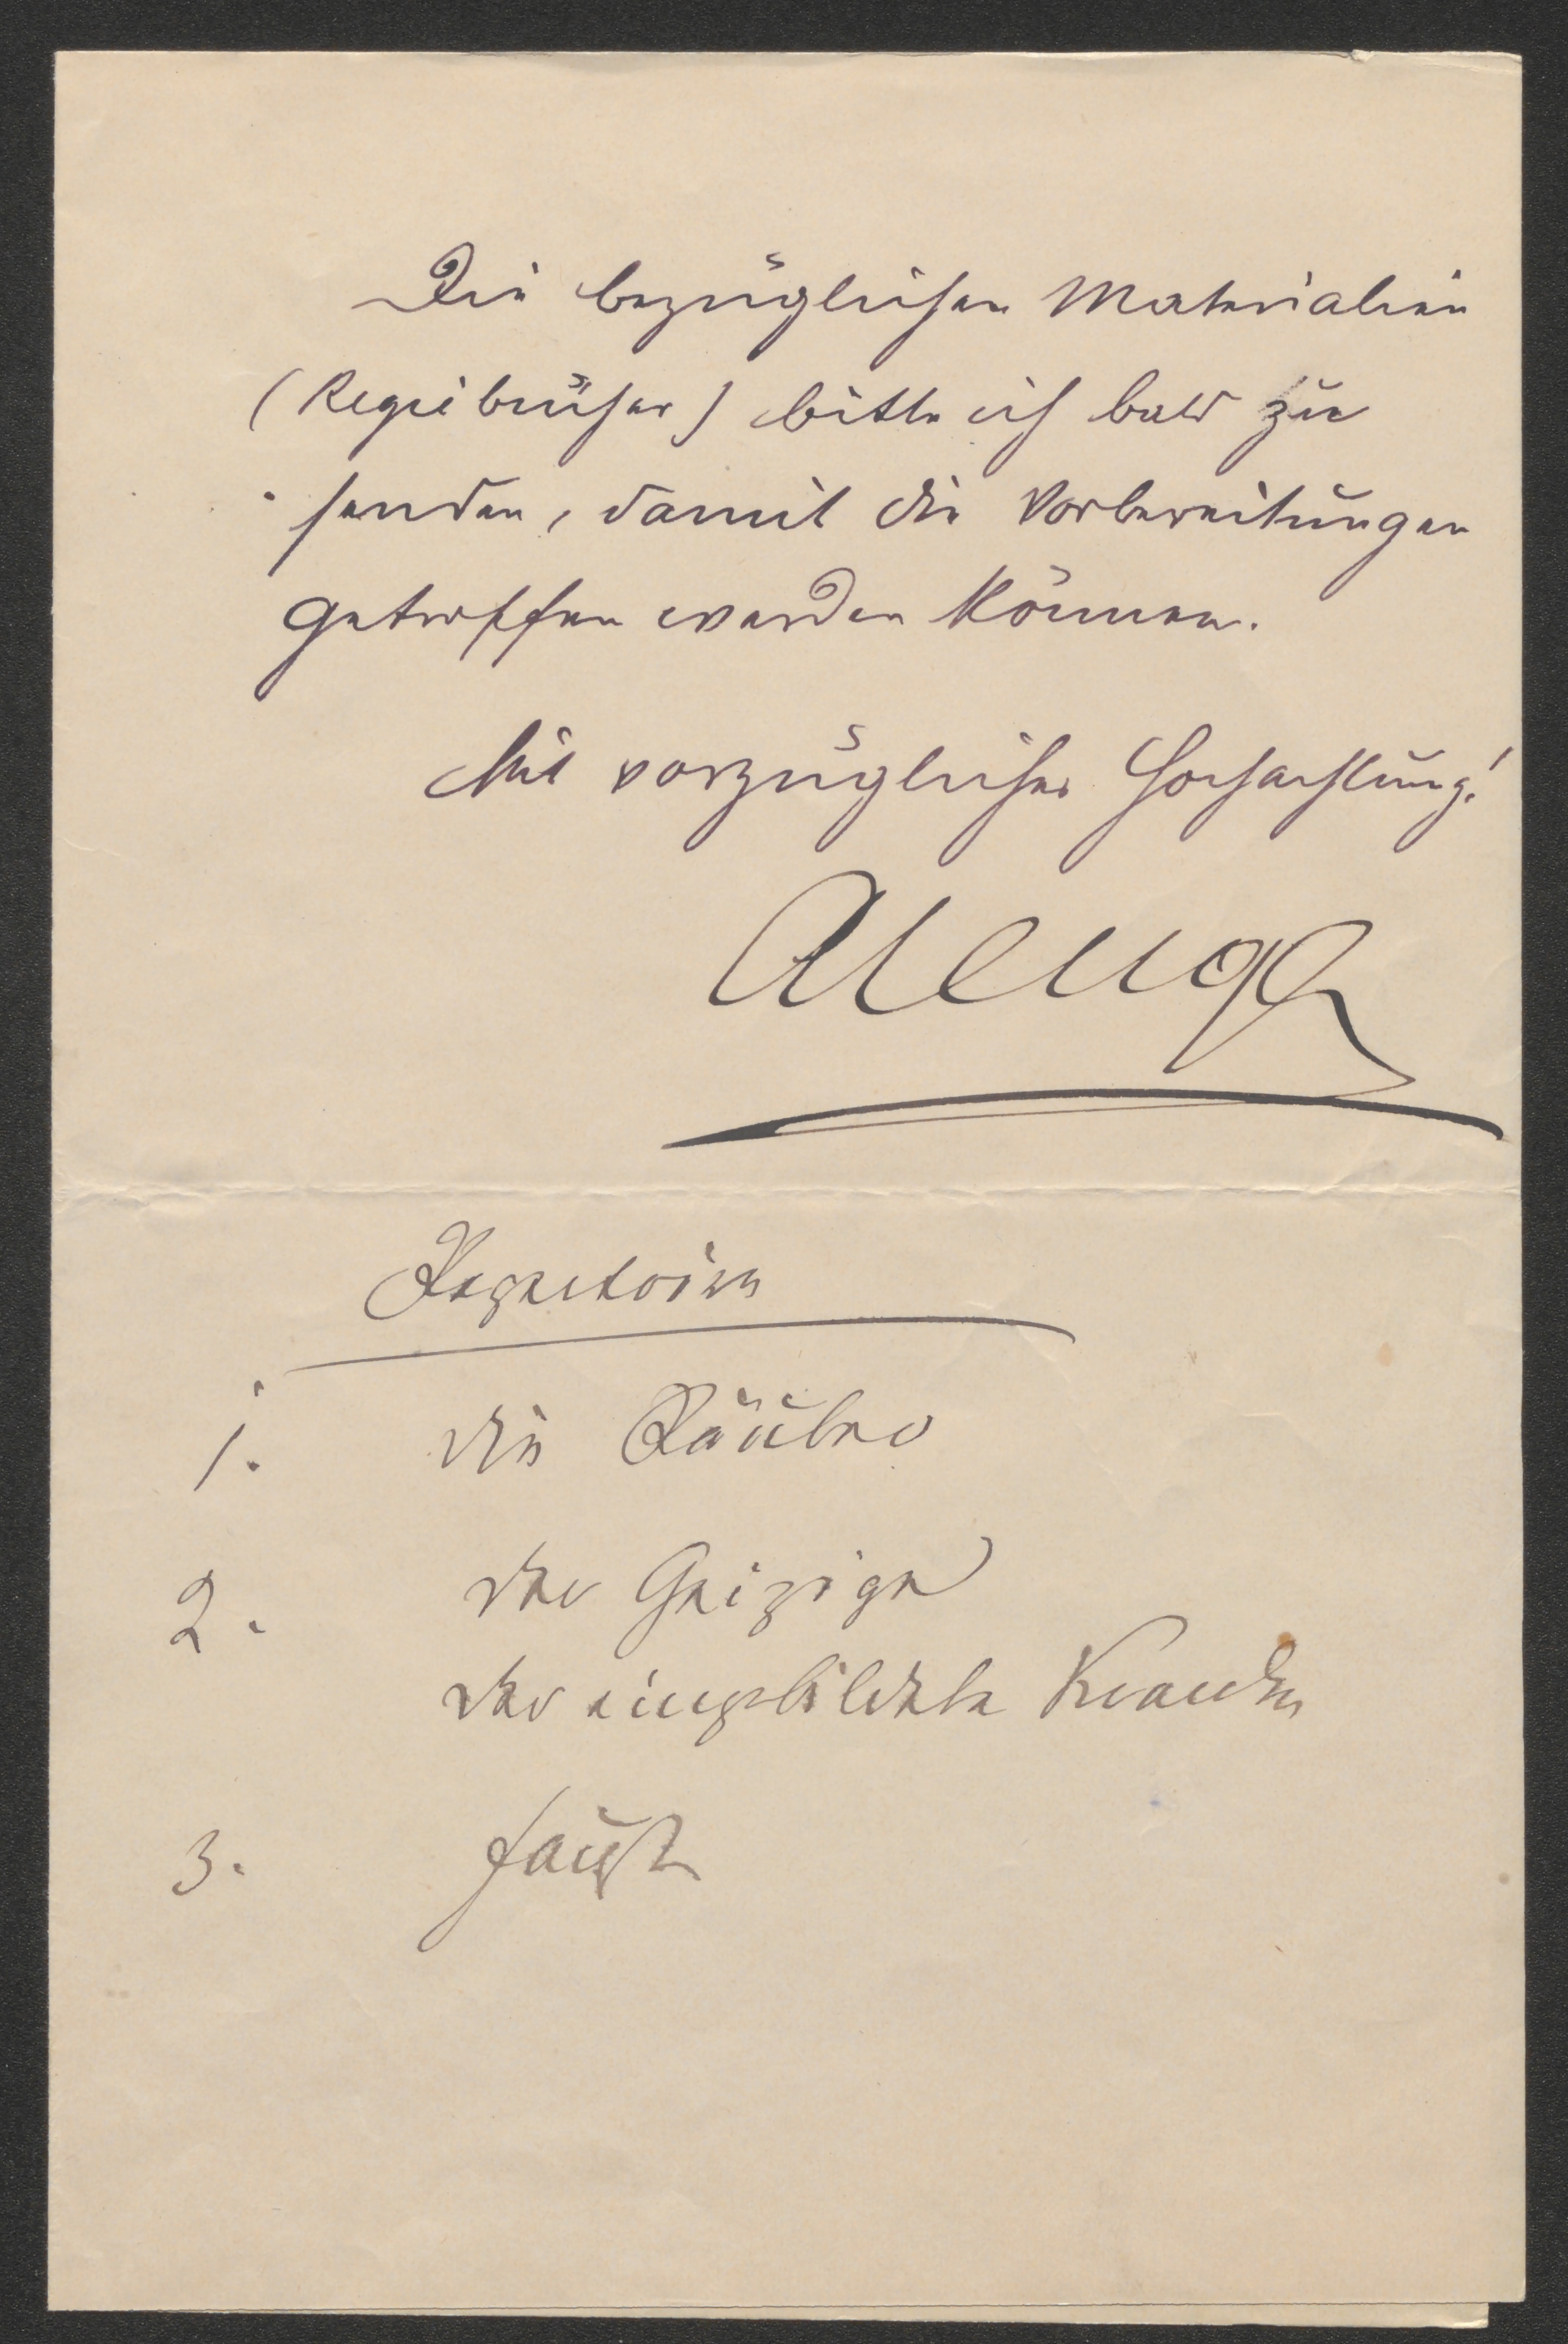 Die bezüglichen Materialien
(Regiebücher) bitte ich bald zu
senden, damit die Vorbereitungen
getroffen werden können.
Mit vorzüglicher Hochachtung!
Repertoire
1. die Räuber
2. der Geizige
der eingebildete Kranke
3. Faust